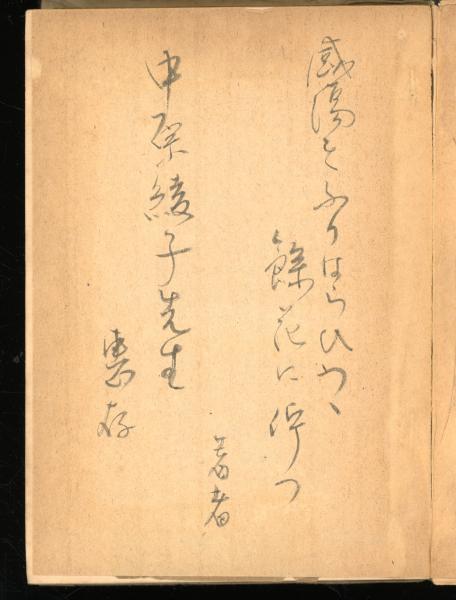 感傷をふりはらひつゝ
餘花に佇つ
著者
中原綾子先生
恵存